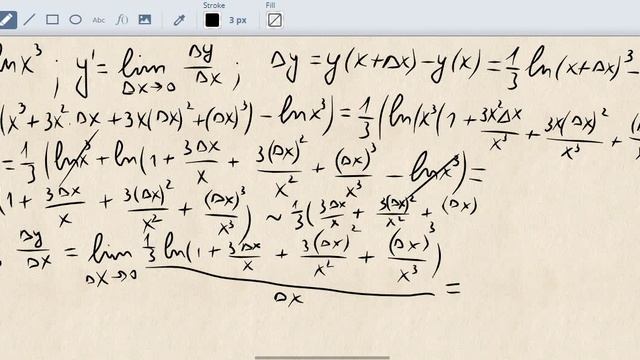 Stroke Fill
Abc f() 3 px
lnx³ ; y' = lim Δx→0 Δy/Δx ; Δy = y(x+Δx) − y(x) = 1/3 ln(x+Δx)³ −
(x³ + 3x²·Δx + 3x(Δx)² + (Δx)³) − lnx³) = 1/3 (ln(x³(1 + 3x²Δx/x³ + 3x(Δx)²/x³ + (Δx
= 1/3 (lnx³ + ln(1 + 3Δx/x + 3(Δx)²/x² + (Δx)³/x³ − lnx³) =
(1 + 3Δx/x + 3(Δx)²/x² + (Δx)³/x³) ~ 1/3(3Δx/x + 3(Δx)²/x² + (Δx)
Δy/Δx = lim Δx→0 1/3 ln(1 + 3Δx/x + 3(Δx)²/x² + (Δx)³/x³) / Δx =